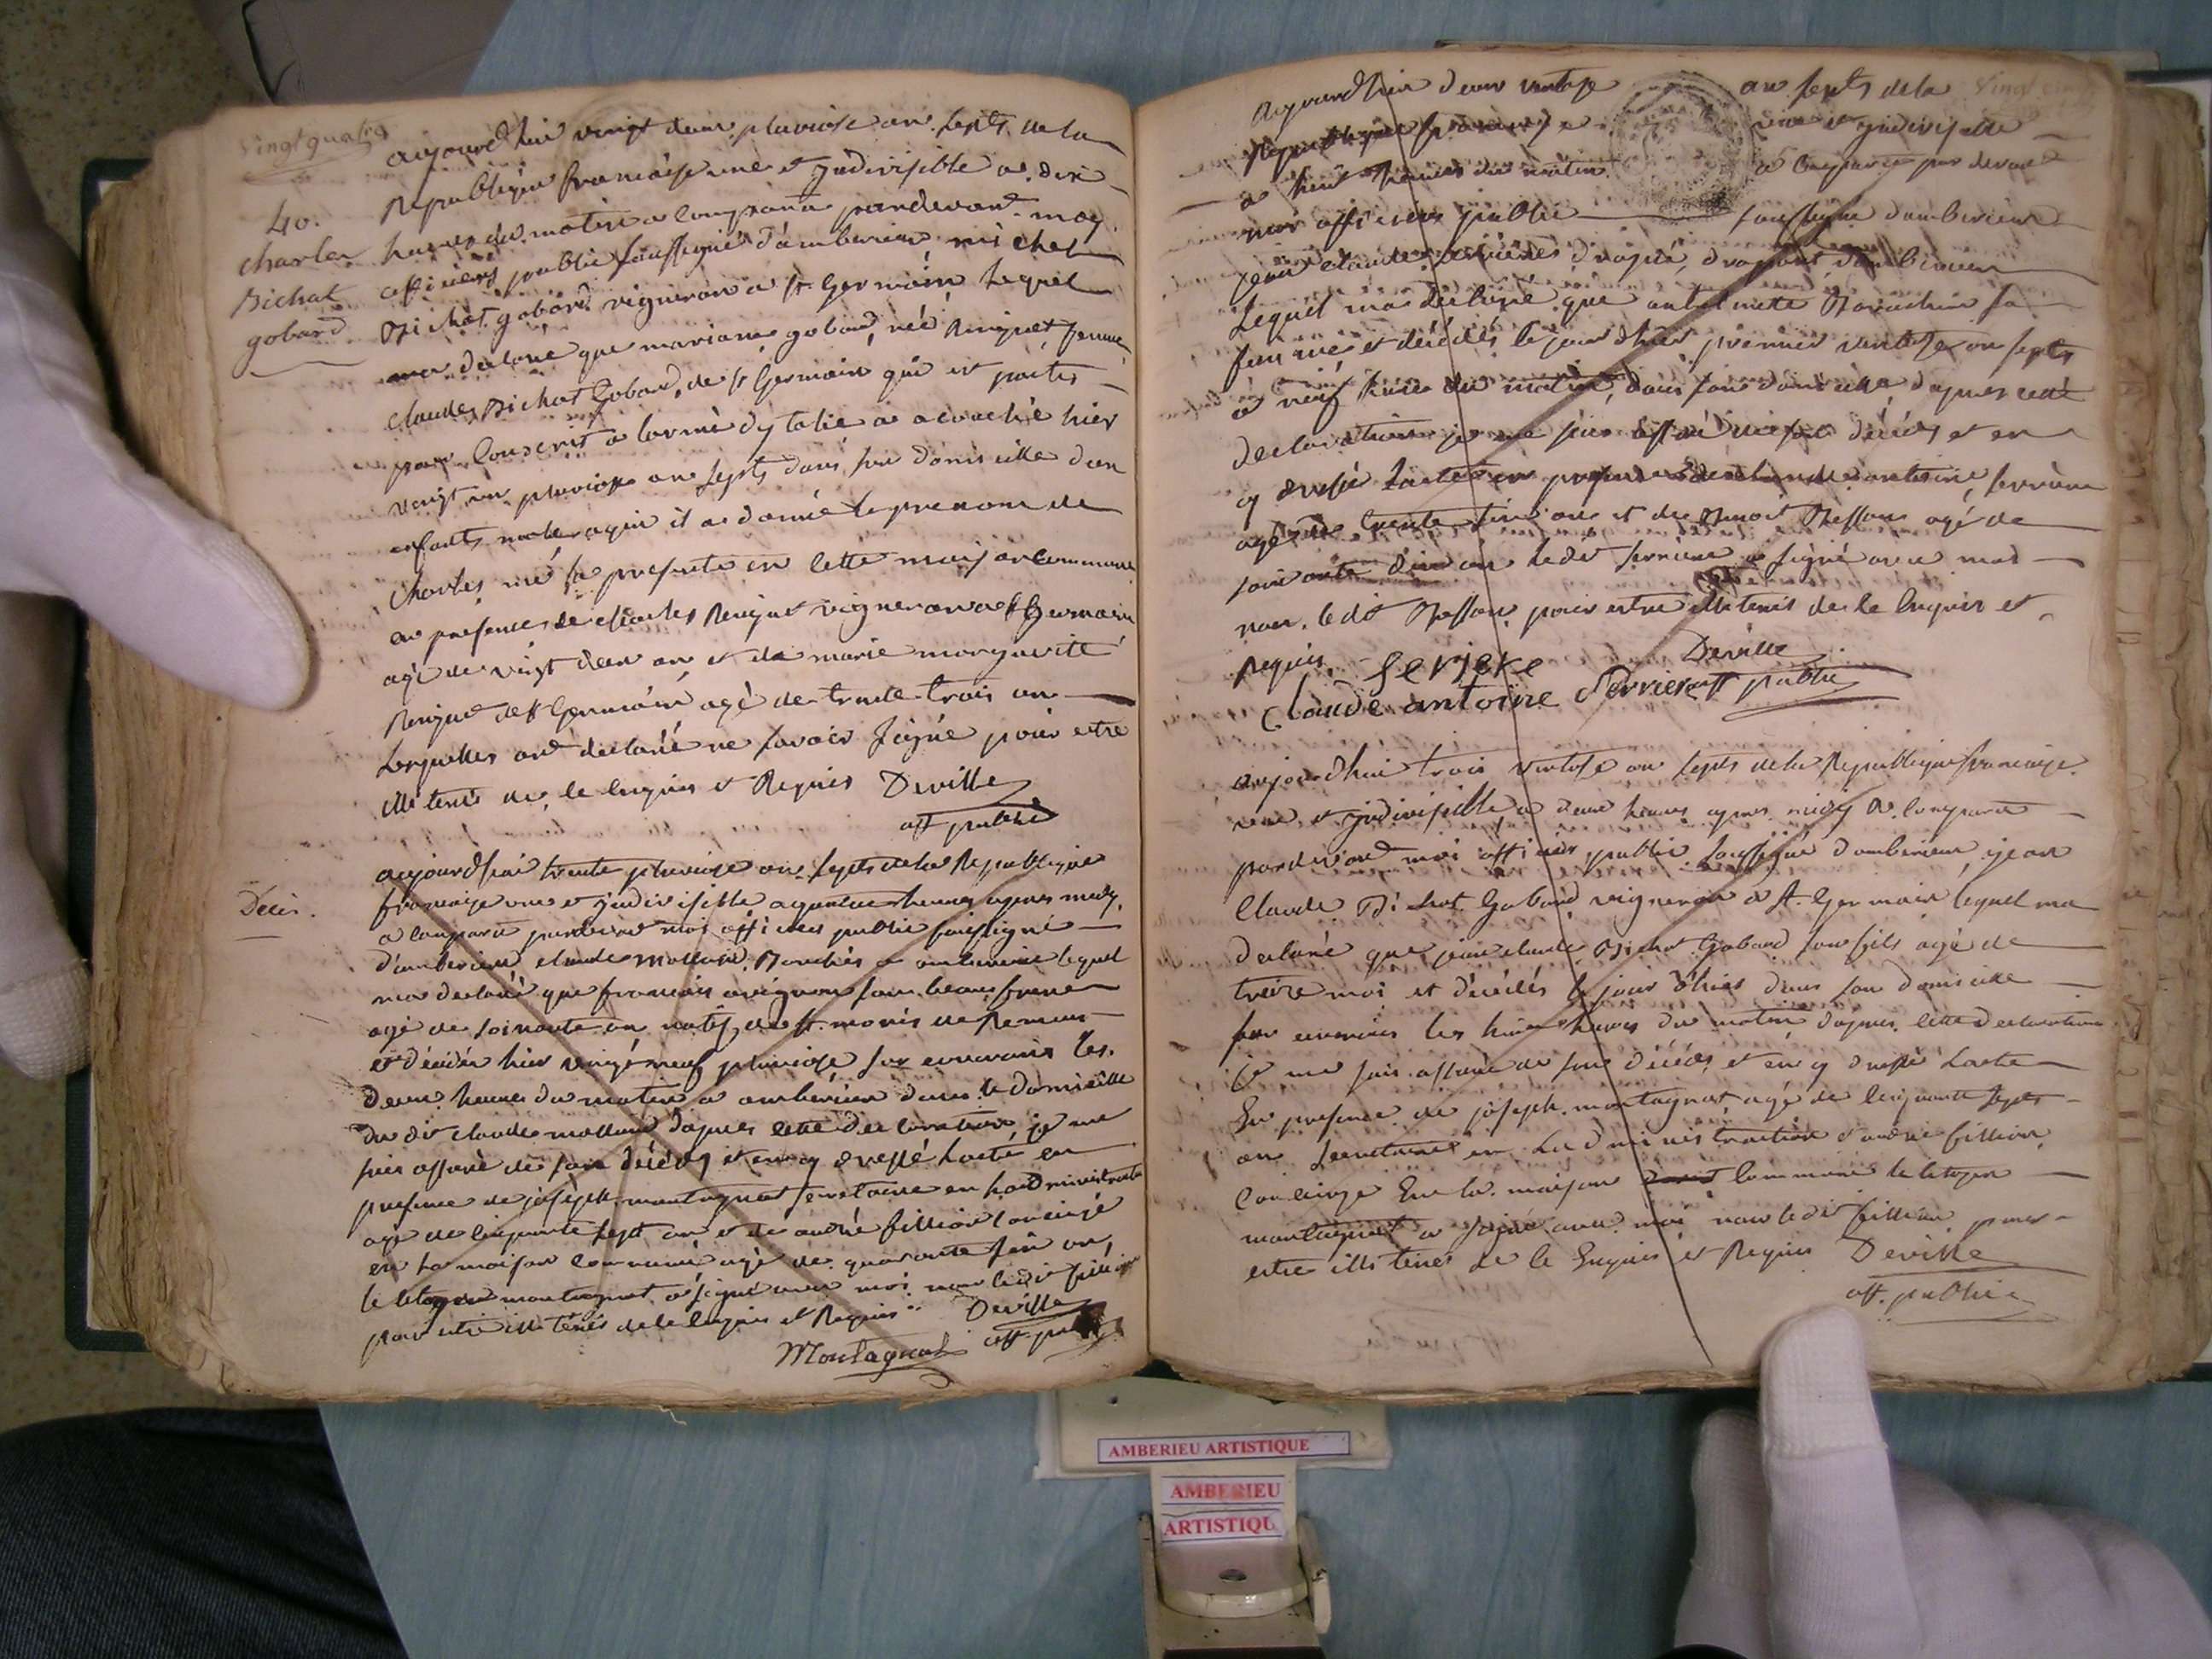 vingt quatre
40.
charles
Bichat
gobard
aujourd'hui vingt deux pluviose an septs de la
Republique francaise une et Indivisible a dix
heures du matin a comparu pardevant moy
officiers public soussigné d'amberieu michel
Bichat gobard vigneron a st. Germain lequel
ma declaré que mariane gobard, née Reniquet femme
claude Bichat Gobard, de st Germain qui est partis
pour Conscrit a larmé dy talie a acouché hier
vingt un pluviose an septs dans son domicille dun
enfants male aqui il a donné le prenom de
Charles, mé la presenté en cette maison commune
en presence de charles Reniquet vigneron a st Germain
agé de vingt deux an et de marie margueritte
Reniquet de st Germain agé de trente trois an
Lesquelles ont declaré ne savoir signé pour etre
illi tenis de le Enquis et Requis Deville
off public
Deces.
aujourdhui trente pluviose an septs de la Republique
francaise une et Indivisible a quatre heures apres medy,
a comparu pardevant moi officiers public soussigné
d'amberieu claude mollard, a amberieu lequel
ma declaré que francois avignon son beau frere
agé de soixante an natif de st. de
et décédés hier vingt neuf pluviose sur environs les
deux heures du matin a amberieu dans le domicille
du dit claude mollard dapres cette declaration je me
suis assuré de son décédés et en ay dressé Lacte en
presence de joseph montagnat secretaire en Ladministration
agé de cinquante sept an et de andré fillion concierge
en la maison commune agé de quarante six an,
le citoyen montagnat a signé avec moi non le dit fillion
pour etre illi tenis de le Enquis et Requis Deville
Montagnat off. public
aujourdhui deux ventose an septs de la vingt cinq
Republique francaise une et Indivisible
a huit heures du matin a Comparu par devant
moi officiers public soussigné damberieu
jean claude drapié, damberieu
Lequel ma declaré que sa
femme et décédés le jour dhier premier ventose an septs
a neuf heures du matin, dans son domicille, dapres cette
declaration je me suis assuré de son décédés et en
ay dressé Lacte en presence de claude antoine serriere
agé de trente six ans et de Benoit Besson agé de
soixante dix an ledit serriere a signé avec moi
non le dit Besson pour etre illi tenis de le Enquis et
Requis. Deville
claude antoine off public
aujourdhui trois ventose an septs de la Republique francaise
une et Indivisible, a deux heures apres midy a comparu
pardevant moi officiers public soussigné damberieu jean
Claude Bichat Gobard vigneron a st. Germain lequel ma
declaré que jean claude Bichat Gobard son fils agé de
treize moi et décédés le jour dhier dans son domicille
sur environs les huit heures du matin dapres cette declaration
je me suis assuré de son décédés et en ay dressé Lacte
En presence de joseph montagnat agé de cinquante septs
an secretaire en Ladministration et andré fillion
Concierge En la maison commune le citoyen
montagnat a signé avec moi non le dit fillion pour
etre illi tenis de le Enquis et Requis Deville
off. public
AMBERIEU ARTISTIQUE
AMBERIEU
ARTISTIQU